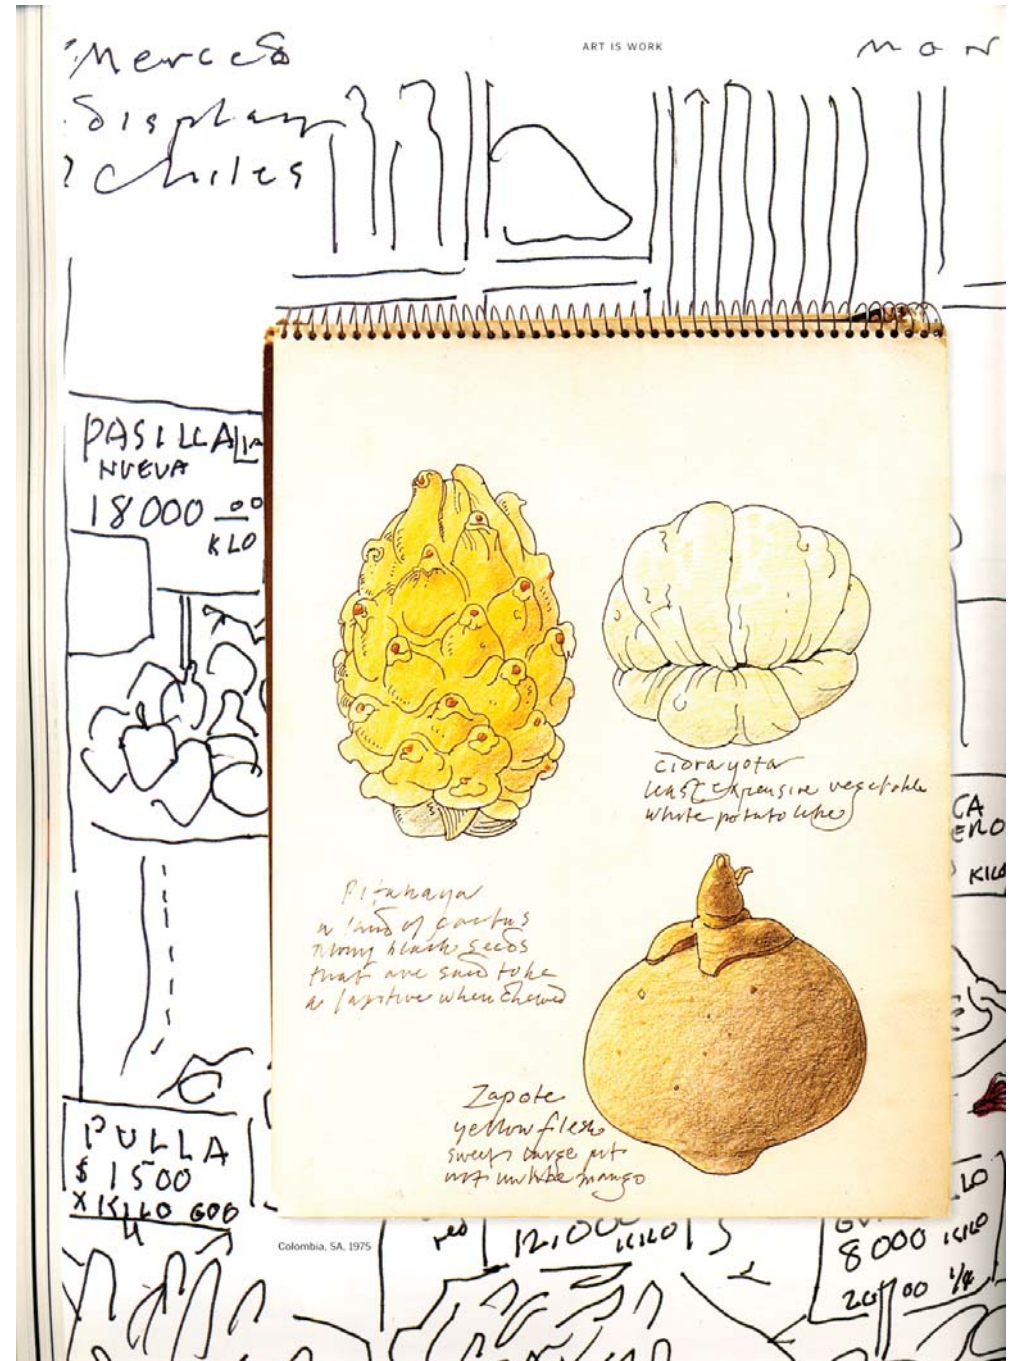 ART IS WORK
MON
Merced
Display
Chiles
PASILLA
NUEVA
18000 00
KLO
ciorayota
least expensive vegetable
white potato like
CA
ERO
KILO
Pitahaya
a kind of cactus
many black seeds
that are said to be
a laxitive when chewed
Zapote
yellow flesh
sweet large pit
not unlike mango
PULLA
$ 1500
X KILO
LO
Colombia, SA, 1975
12,000
KILO
8000 KILO
2000 1/4